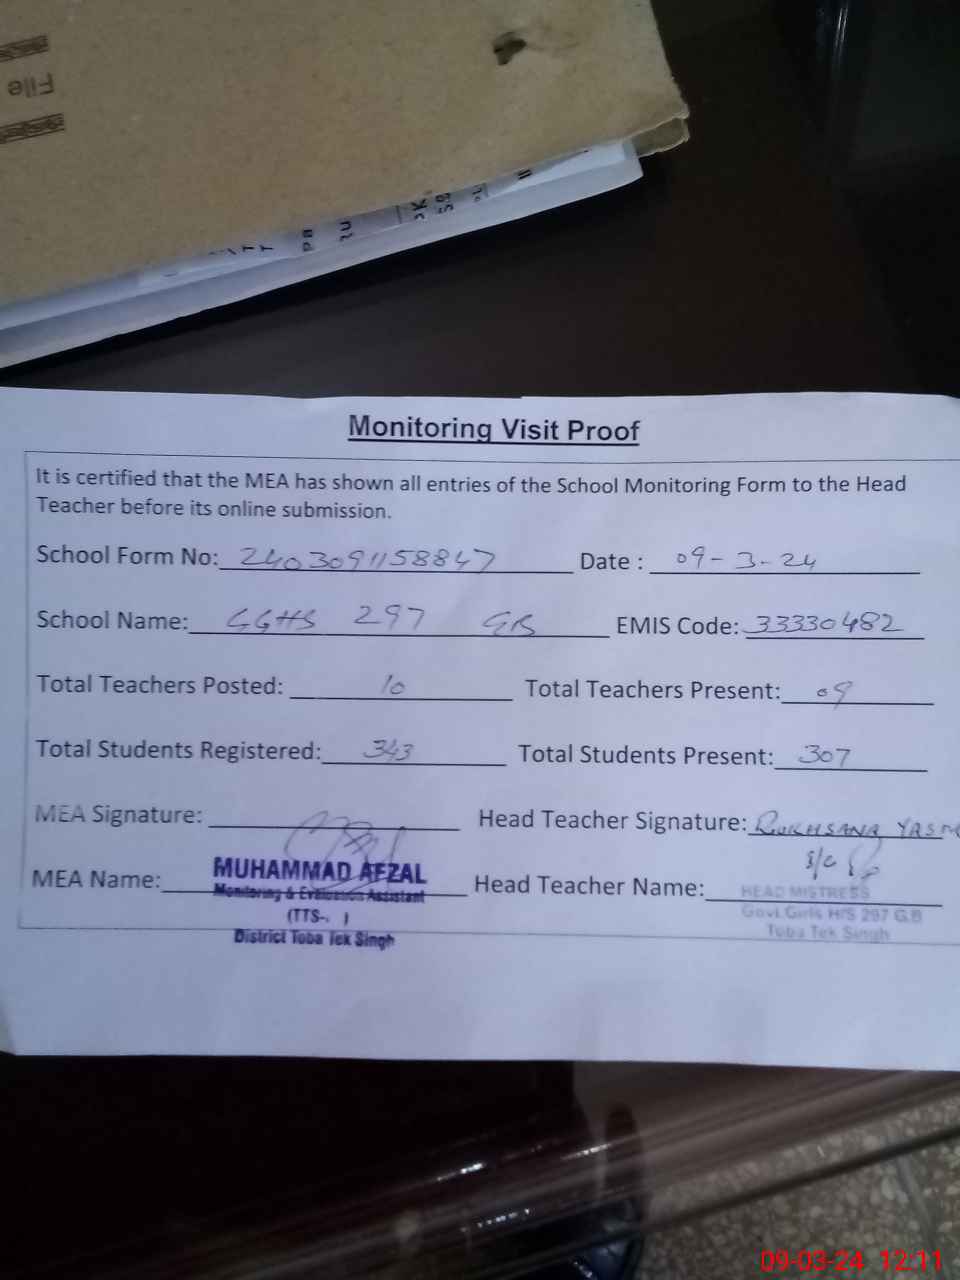 File
Monitoring Visit Proof
It is certified that the MEA has shown all entries of the School Monitoring Form to the Head
Teacher before its online submission.
School Form No: 2403091158847 Date : 09-3-24
School Name: GGHS 297 GB EMIS Code: 33330482
Total Teachers Posted: 10 Total Teachers Present: 09
Total Students Registered: 343 Total Students Present: 307
MEA Signature: Head Teacher Signature: RUKHSANA YASM
S/C
MEA Name: MUHAMMAD AFZAL Head Teacher Name:
Monitoring & Evaluation Assistant HEAD MISTRESS
(TTS-. ) Govt.Girls H/S 297 G.B
District Toba Tek Singh Toba Tek Singh
09-03-24 12:11